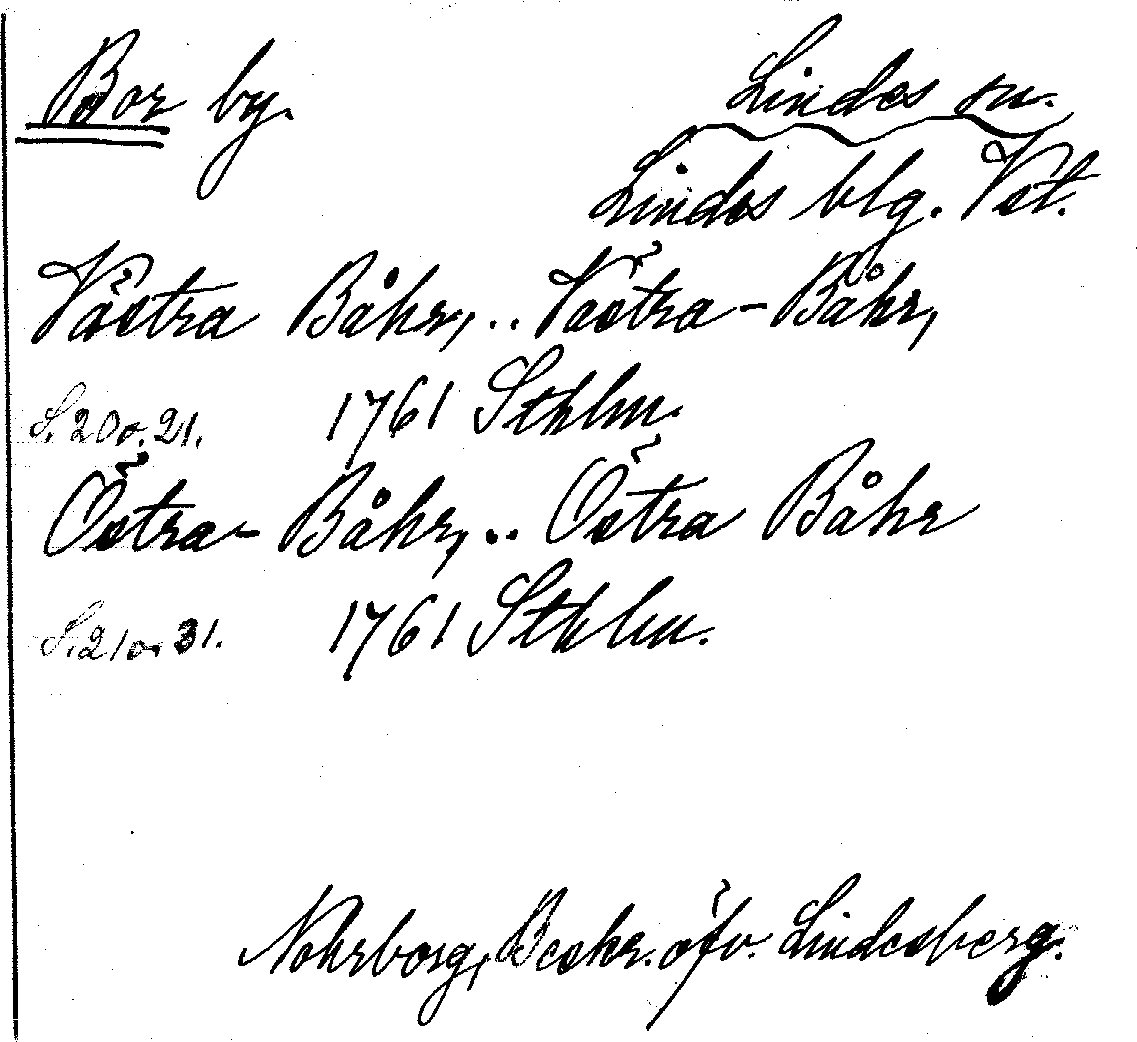 Bor by.
Lindes sn.
Lindes blg. Vst.
Västra Båhr, .. Västra-Båhr,
S. 20 o. 21. 1761 Sthlm.
Östra- Båhr, .. Östra Båhr
S. 21 o. 31. 1761 Sthlm.
Nohrborg, Beskr. öfv. Lindesberg.